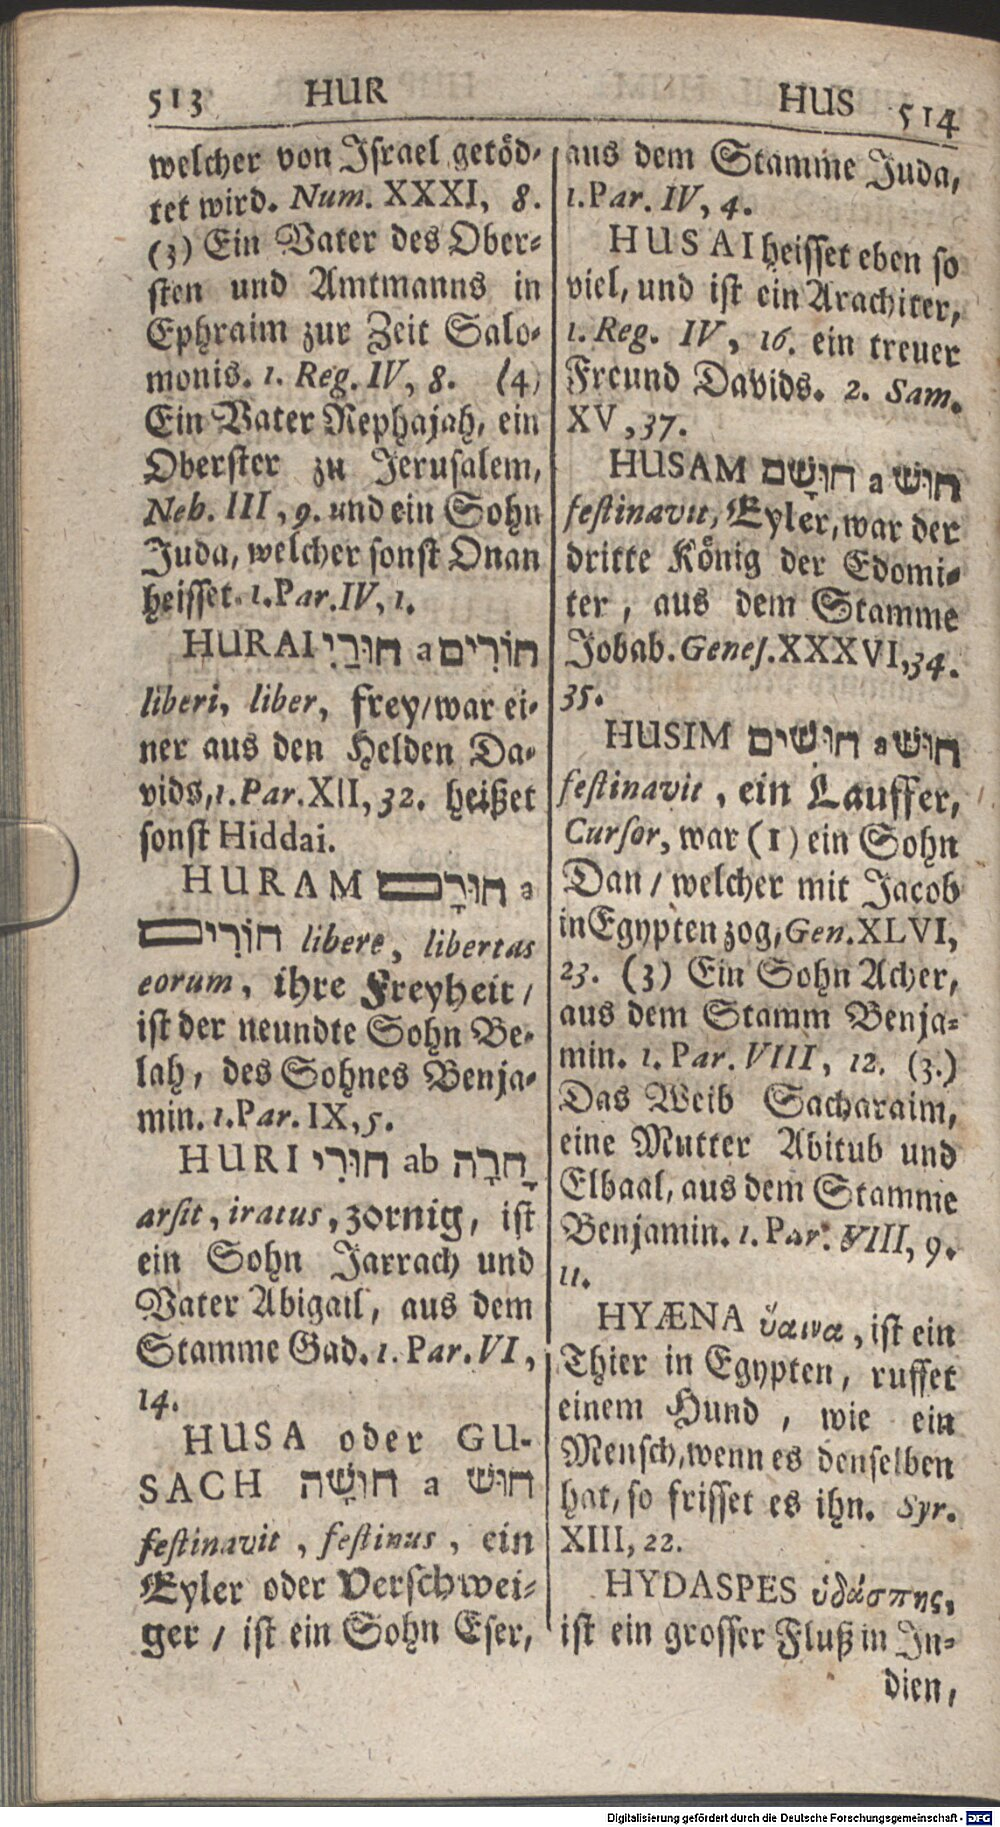 513 HUR
welcher von Israel getöd-
tet wird. Num. XXXI, 8.
(3) Ein Vater des Ober-
sten und Amtmanns in
Ephraim zur Zeit Salo-
monis. 1. Reg. IV, 8. (4)
Ein Vater Rephajah, ein
Oberster zu Jerusalem,
Neb. III, 9. und ein Sohn
Juda, welcher sonst Onan
heisset. 1. Par. IV, 1.
HURAI חוּרַי a חוֹרִים
liberi, liber, frey/ war ei-
ner aus den Helden Da-
vids, 1. Par. XII, 32. heißet
sonst Hiddai.
HURAM חוּרָם a
חוֹרִים libere, libertas
eorum, ihre Freyheit/
ist der neundte Sohn Be-
lah, des Sohnes Benja-
min. 1. Par. IX, 5.
HURI חוּרִי ab חָרָה
arsit, iratus, zornig, ist
ein Sohn Jarrach und
Vater Abigail, aus dem
Stamme Gad. 1. Par. VI,
14.
HUSA oder GU-
SACH חוּשָׁה a חוּשׁ
festinavit, festinus, ein
Eyler oder Verschwei-
ger / ist ein Sohn Eser,
HUS 514
aus dem Stamme Juda,
1. Par. IV, 4.
HUSAI heisset eben so
viel, und ist ein Arachiter,
1. Reg. IV, 16. ein treuer
Freund Davids. 2. Sam.
XV, 37.
HUSAM חוּשָׁם a חוּשׁ
festinavit, Eyler, war der
dritte König der Edomi-
ter, aus dem Stamme
Jobab. Genes. XXXVI, 34.
35.
HUSIM חוּשִׁים a חוּשׁ
festinavit, ein Lauffer,
Cursor, war (1) ein Sohn
Dan / welcher mit Jacob
in Egypten zog, Gen. XLVI,
23. (3) Ein Sohn Acher,
aus dem Stamm Benja-
min. 1. Par. VIII, 12. (3.)
Das Weib Sacharaim,
eine Mutter Abitub und
Elbaal, aus dem Stamme
Benjamin. 1. Par. VIII, 9.
11.
HYÆNA ὕαινα, ist ein
Thier in Egypten, ruffet
einem Hund, wie ein
Mensch, wenn es denselben
hat, so frisset es ihn. Syr.
XIII, 22.
HYDASPES ὑδάσπης,
ist ein grosser Fluß in In-
dien,
Digitalisierung gefördert durch die Deutsche Forschungsgemeinschaft - DFG